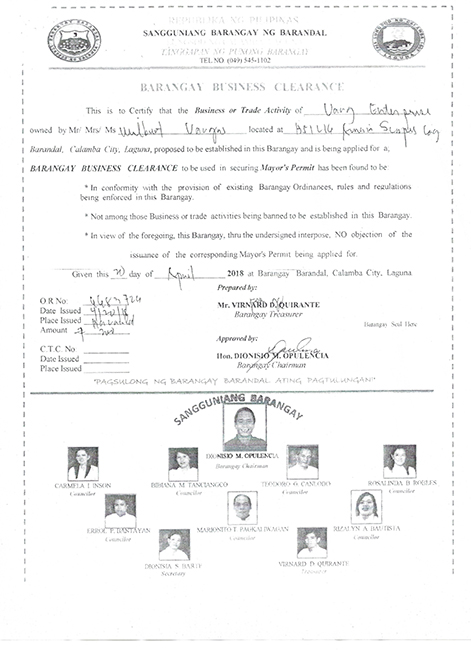 REPUBLIKA NG PILIPINAS
SANGGUNIANG BARANGAY NG BARANDAL
TANGGAPAN NG PUNONG BARANGAY
TEL NO (049) 545-1102
BARANGAY BUSINESS CLEARANCE
This is to Certify that the Business or Trade Activity of Enterprise
owned by Mr/ Mrs/ Ms Vargas located at
Barandal, Calamba City, Laguna, proposed to be established in this Barangay and is being applied for a;
BARANGAY BUSINESS CLEARANCE to be used in securing Mayor's Permit has been found to be:
* In conformity with the provision of existing Barangay Ordinances, rules and regulations
being enforced in this Barangay.
* Not among those Business or trade activities being banned to be established in this Barangay.
* In view of the foregoing, this Barangay, thru the undersigned interpose, NO objection of the
issuance of the corresponding Mayor's Permit being applied for.
Given this 20 day of April 2018 at Barangay Barandal, Calamba City, Laguna
Prepared by:
O R No:
Mr. VIRNARD D. QUIRANTE
Date Issued 4/20/18
Barangay Treasurer
Place Issued Barandal
Barangay Seal Here
Amount
Approved by:
C.T.C. No
Hon. DIONISIO M. OPULENCIA
Date Issued
Barangay Chairman
Place Issued
"PAGSULONG NG BARANGAY BARANDAL ATING PAGTULUNGAN"
SANGGUNIANG BARANGAY
DIONISIO M. OPULENCIA
Barangay Chairman
CARMELA I. INSON
BIBIANA M. TANCIANGCO
TEODORO G. CANDADO
ROSALINDA D. ROBLES
Councilor
Councilor
Councilor
Councilor
ERROL P. BANTAYAN
MARIONITO T. PAGKALIWAGAN
RIZALYN A. BAUTISTA
Councilor
Councilor
Councilor
DIONISIA S. BARIT
VIRNARD D. QUIRANTE
Secretary
Treasurer